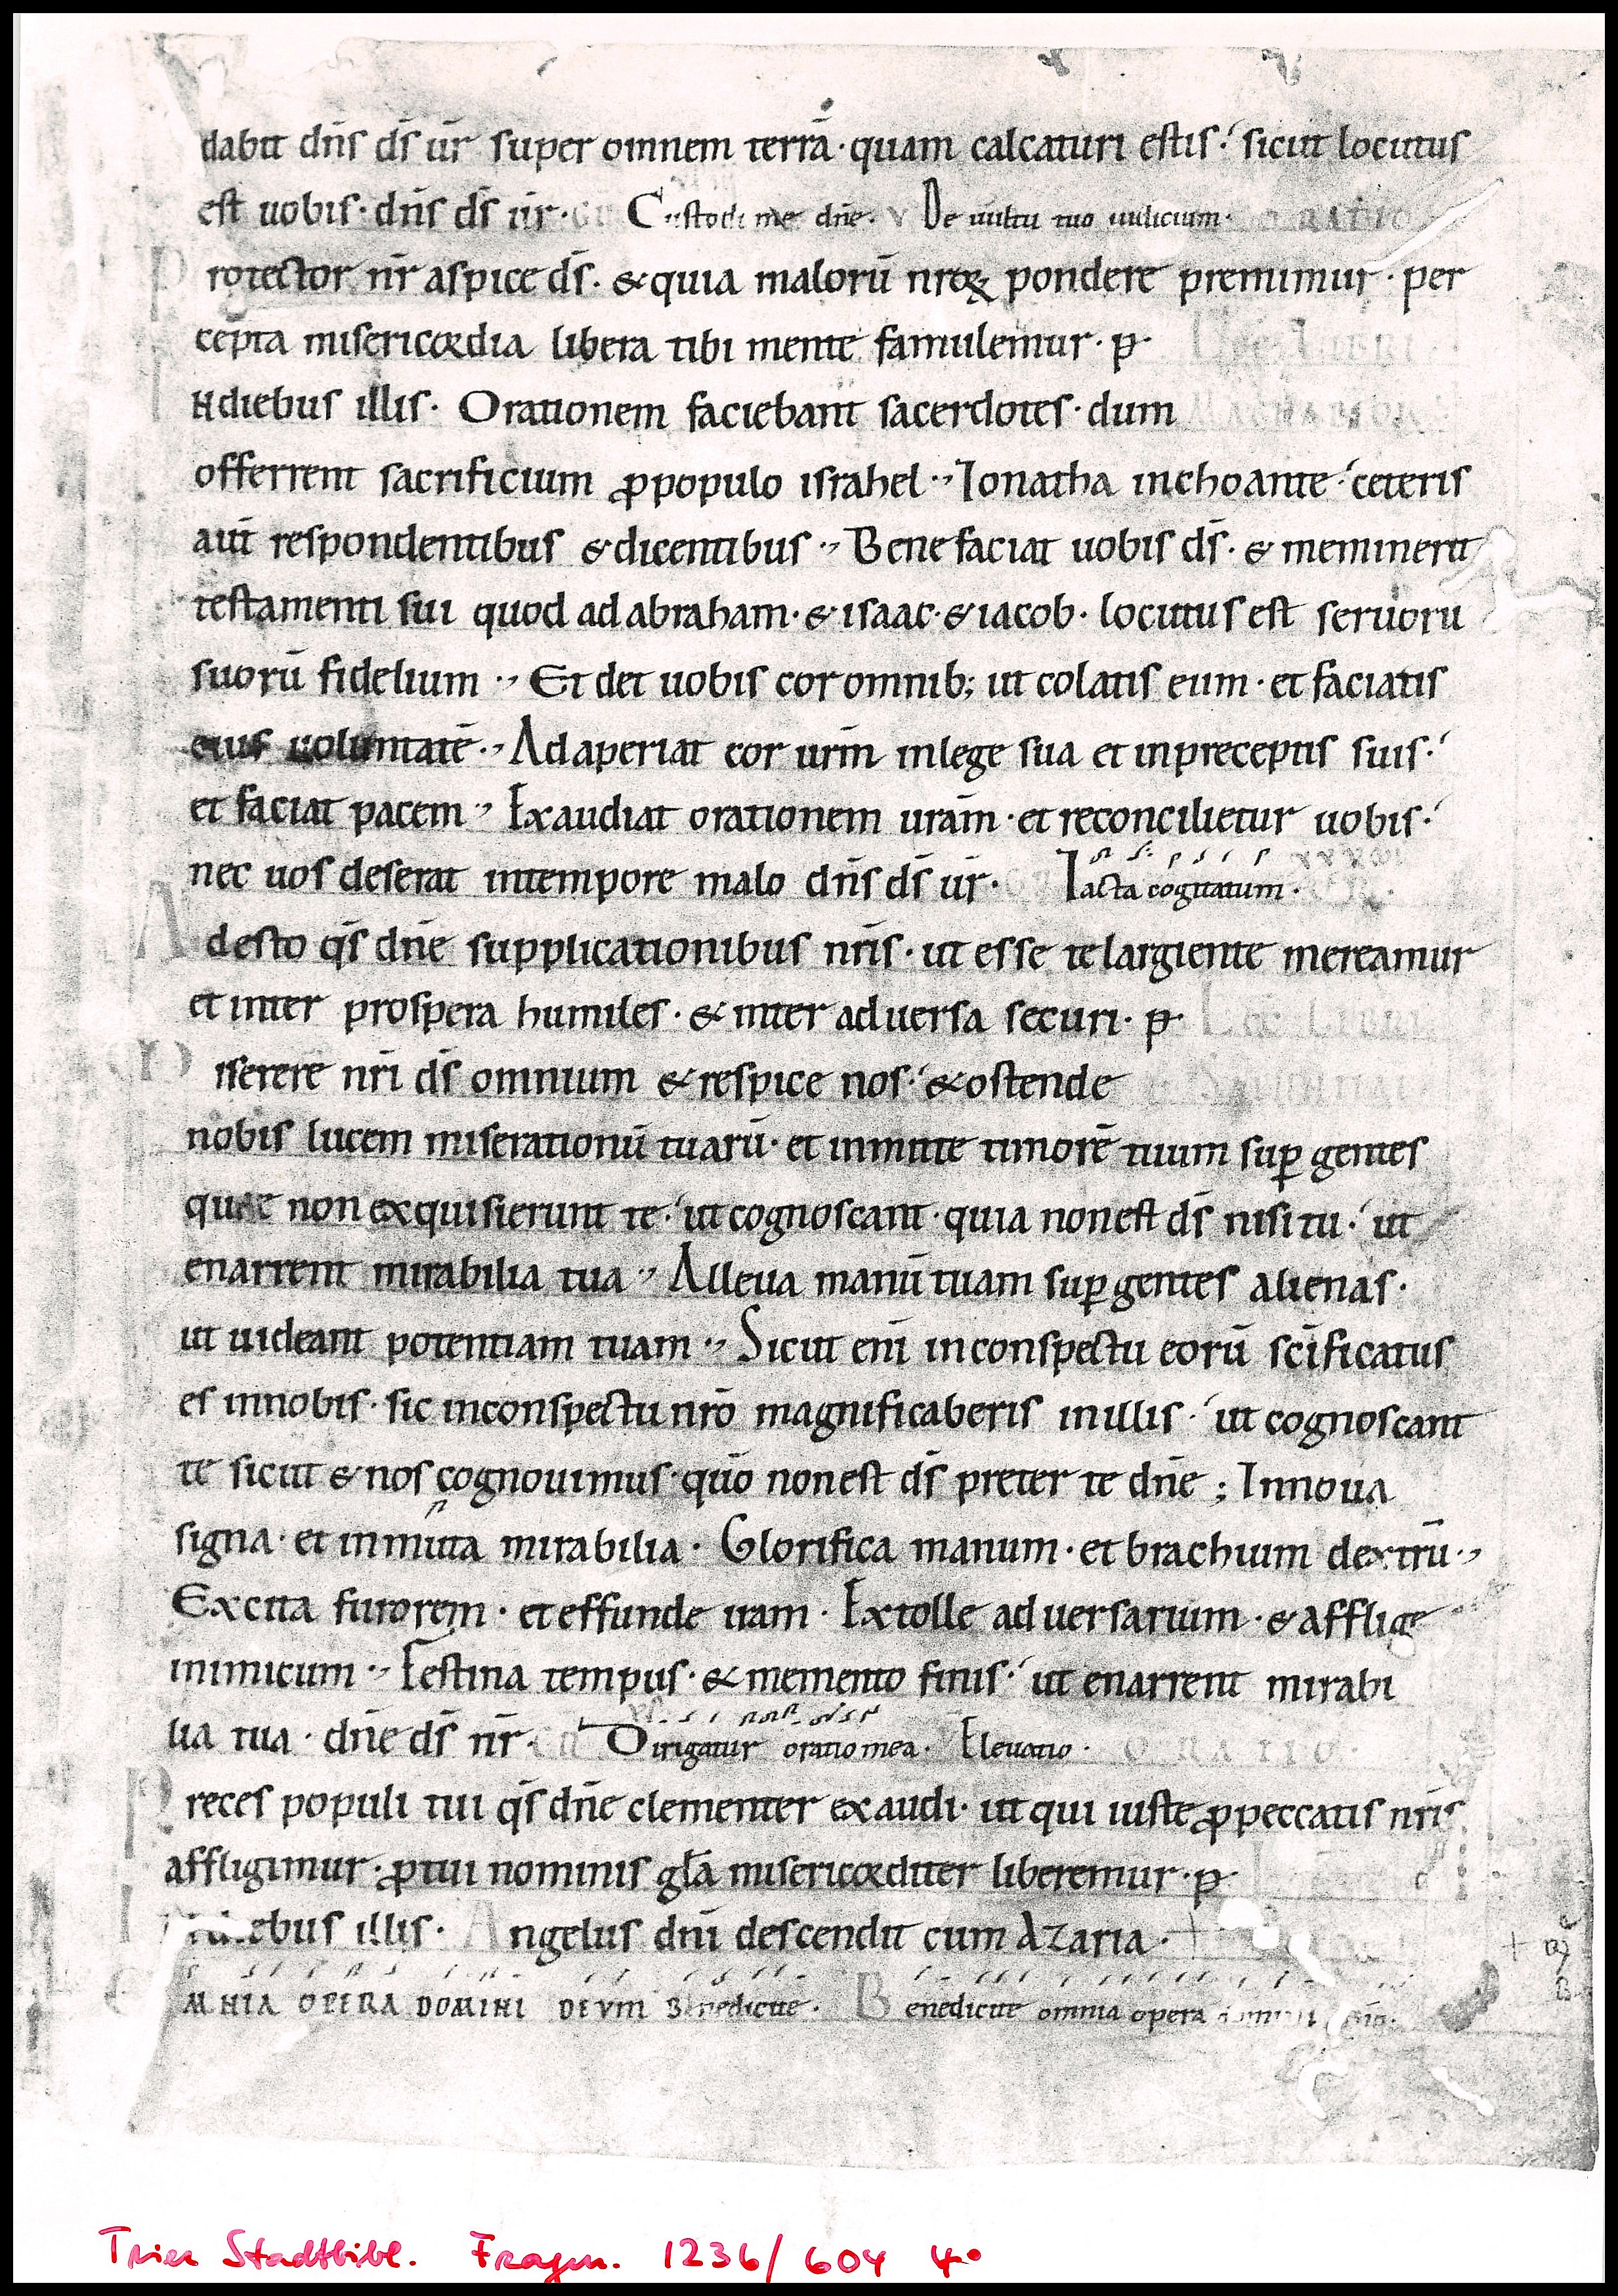 dabit dn̄s ds̄ ur̄ super omnem terrā· quam calcaturi estis· sicut locutus
est uobis· dn̄s ds̄ ur̄· Custodi me dn̄e· V De uultu tuo iudicium· ORATIO
Protector nr̄ aspice ds̄· & quia malorū nrōꝝ pondere premimur· per
cepta misericordia libera tibi mente famulemur· p̄· Lēc LIBRI
Hdiebus illis· Orationem faciebant sacerdotes· dum MACHABEOR
offerrent sacrificium ꝓpopulo israhel·, Ionatha inchoante· ceteris
aut̄ respondentibus & dicentibus·, Bene faciat uobis ds̄· & meminerit
testamenti sui quod ad abraham· & isaac· & iacob· locutus est seruoru
suorū fidelium·, Et det uobis cor omnib; ut colatis eum· et faciatis
eius uoluntatē·, Adaperiat cor urm̄ inlege sua et inpreceptis suis·
et faciat pacem·, Exaudiat orationem urām· et reconcilietur uobis·
nec uos deserat intempore malo dn̄s ds̄ ur̄· GR Iacta cogitatum·
Adesto qs̄ dn̄e supplicationibus nrīs· ut esse te largiente mereamur
et inter prospera humiles· & inter aduersa securi· p̄· Lēc Libri
Miserere nrī ds̄ omnium & respice nos· & ostende
nobis lucem miserationū tuarū· et inmitte timorē tuum sup̱ gentes
quae non exquisierunt te· ut cognoscant· quia non est ds̄ nisi tu· ut
enarrent mirabilia tua·, Alleua manū tuam sup̱ gentes alienas·
ut uideant potentiam tuam·, Sicut enī inconspectu eorū scīficatus
es innobis· sic inconspectu nrō magnificaberis inillis· ut cognoscant
te sicut & nos cognouimus· quō non est ds̄ preter te dn̄e; Innoua
signa· et inmuta mirabilia· Glorifica manum· et brachium dextrū·,
Excita furorem· et effunde iram· Extolle aduersarium· & afflige
inimicum·, Festina tempus· & memento finis· ut enarrent mirabi
lia tua· dn̄e ds̄ nr̄· GR Dirigatur oratio mea· Eleuatio· ORATIO·
Preces populi tui qs̄ dn̄e clementer exaudi· ut qui iuste ꝓpeccatis nrīs
affligimur· ꝓtui nominis glā misericorditer liberemur· p̄·
Indiebus illis· Angelus dnī descendit cum Azaria· +
OMNIA OPERA DOMINI DEVM Benedicite· Benedicite omnia opera domini
Trier Stadtbibl. Fragm. 1236/604 4°